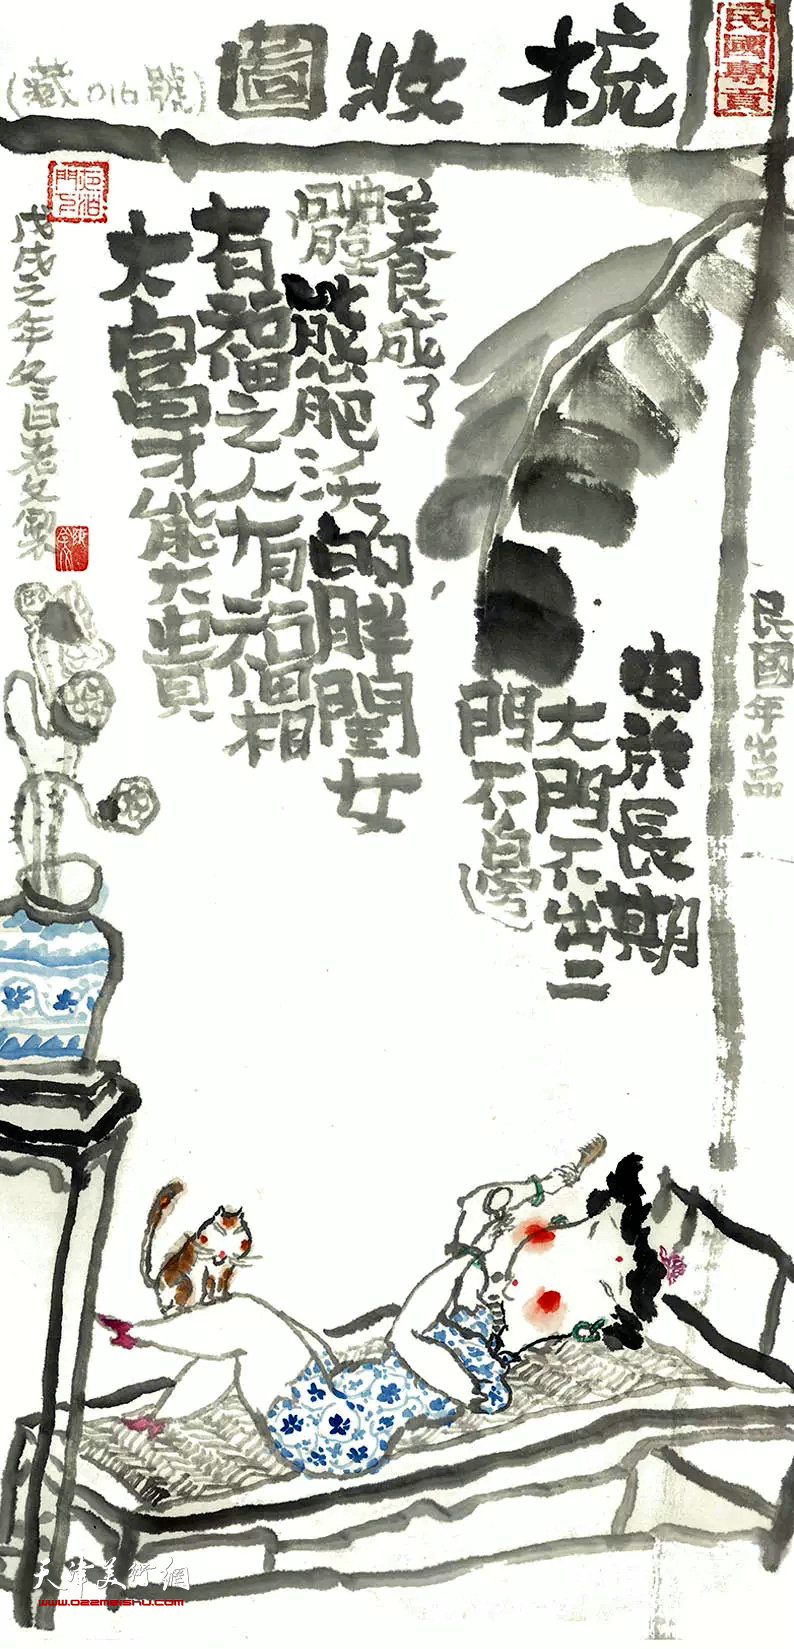 梳妝圖
(藏016號)
民國專賣
民國年出品
由於長期
大門不出二
門不邊
養成了
體態肥沃的胖閨女
有福之人有福相
大富才能大貴
戊戌之年冬日老文製
天津美術網
www.022meishu.com